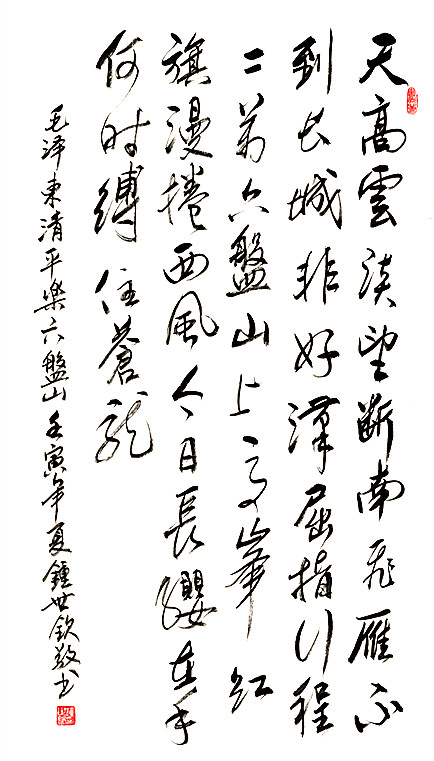 天高雲淡望斷南飛雁不
到长城非好漢屈指行程
二萬六盤山上高峯紅
旗漫捲西風今日長纓在手
何时縛住蒼龍
毛泽東清平樂六盤山 壬寅年夏鍾世欽敬书